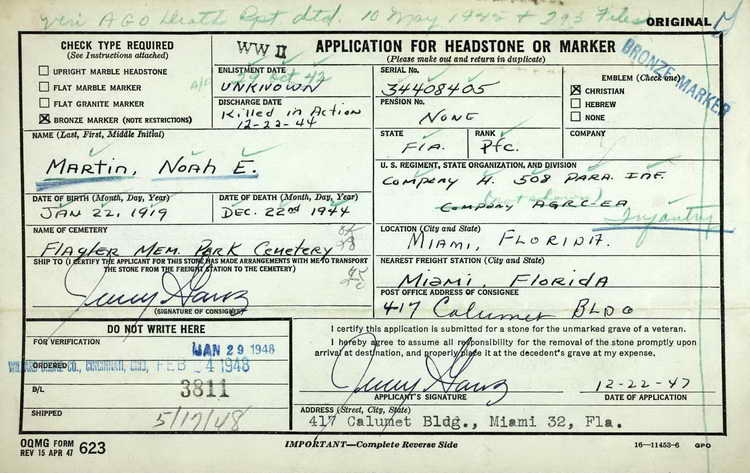 veri AGO Death Rpt. dtd. 10 May 1945 + 293 Files
ORIGINAL
CHECK TYPE REQUIRED
(See Instructions attached)
UPRIGHT MARBLE HEADSTONE
FLAT MARBLE MARKER
FLAT GRANITE MARKER
☒ BRONZE MARKER (NOTE RESTRICTIONS)
WW II
APPLICATION FOR HEADSTONE OR MARKER
(Please make out and return in duplicate)
BRONZE MARKER
ENLISTMENT DATE
29 Oct 42
UNKNOWN
DISCHARGE DATE
Killed in Action
12-22-44
SERIAL No.
34408405
PENSION No.
NONE
EMBLEM (Check one)
☒ CHRISTIAN
HEBREW
NONE
STATE
Fla.
RANK
Pfc.
COMPANY
NAME (Last, First, Middle Initial)
MARTIN, NOAH E.
U. S. REGIMENT, STATE ORGANIZATION, AND DIVISION
COMPANY A. 508 PARA. INF.
COMPANY AGRC-EA
Infantry
DATE OF BIRTH (Month, Day, Year)
JAN 22, 1919
DATE OF DEATH (Month, Day, Year)
DEC. 22nd 1944
NAME OF CEMETERY
Flagler Mem. Park Cemetery
LOCATION (City and State)
MIAMI, FLORIDA.
SHIP TO (I CERTIFY THE APPLICANT FOR THIS STONE HAS MADE ARRANGEMENTS WITH ME TO TRANSPORT
THE STONE FROM THE FREIGHT STATION TO THE CEMETERY)
(SIGNATURE OF CONSIGNEE)
NEAREST FREIGHT STATION (City and State)
Miami, Florida
POST OFFICE ADDRESS OF CONSIGNEE
417 Calumet BLDG
DO NOT WRITE HERE
FOR VERIFICATION
JAN 29 1948
ORDERED
CO., CINCINNATI, OHIO, FEB 24 1948
B/L
3811
SHIPPED
5/17/48
I certify this application is submitted for a stone for the unmarked grave of a veteran.
I hereby agree to assume all responsibility for the removal of the stone promptly upon
arrival at destination, and properly place it at the decedent's grave at my expense.
12-22-47
APPLICANT'S SIGNATURE
DATE OF APPLICATION
ADDRESS (Street, City, State)
417 Calumet Bldg., Miami 32, Fla.
OQMG FORM 623
REV 15 APR 47
IMPORTANT—Complete Reverse Side
16—11453-6 GPO